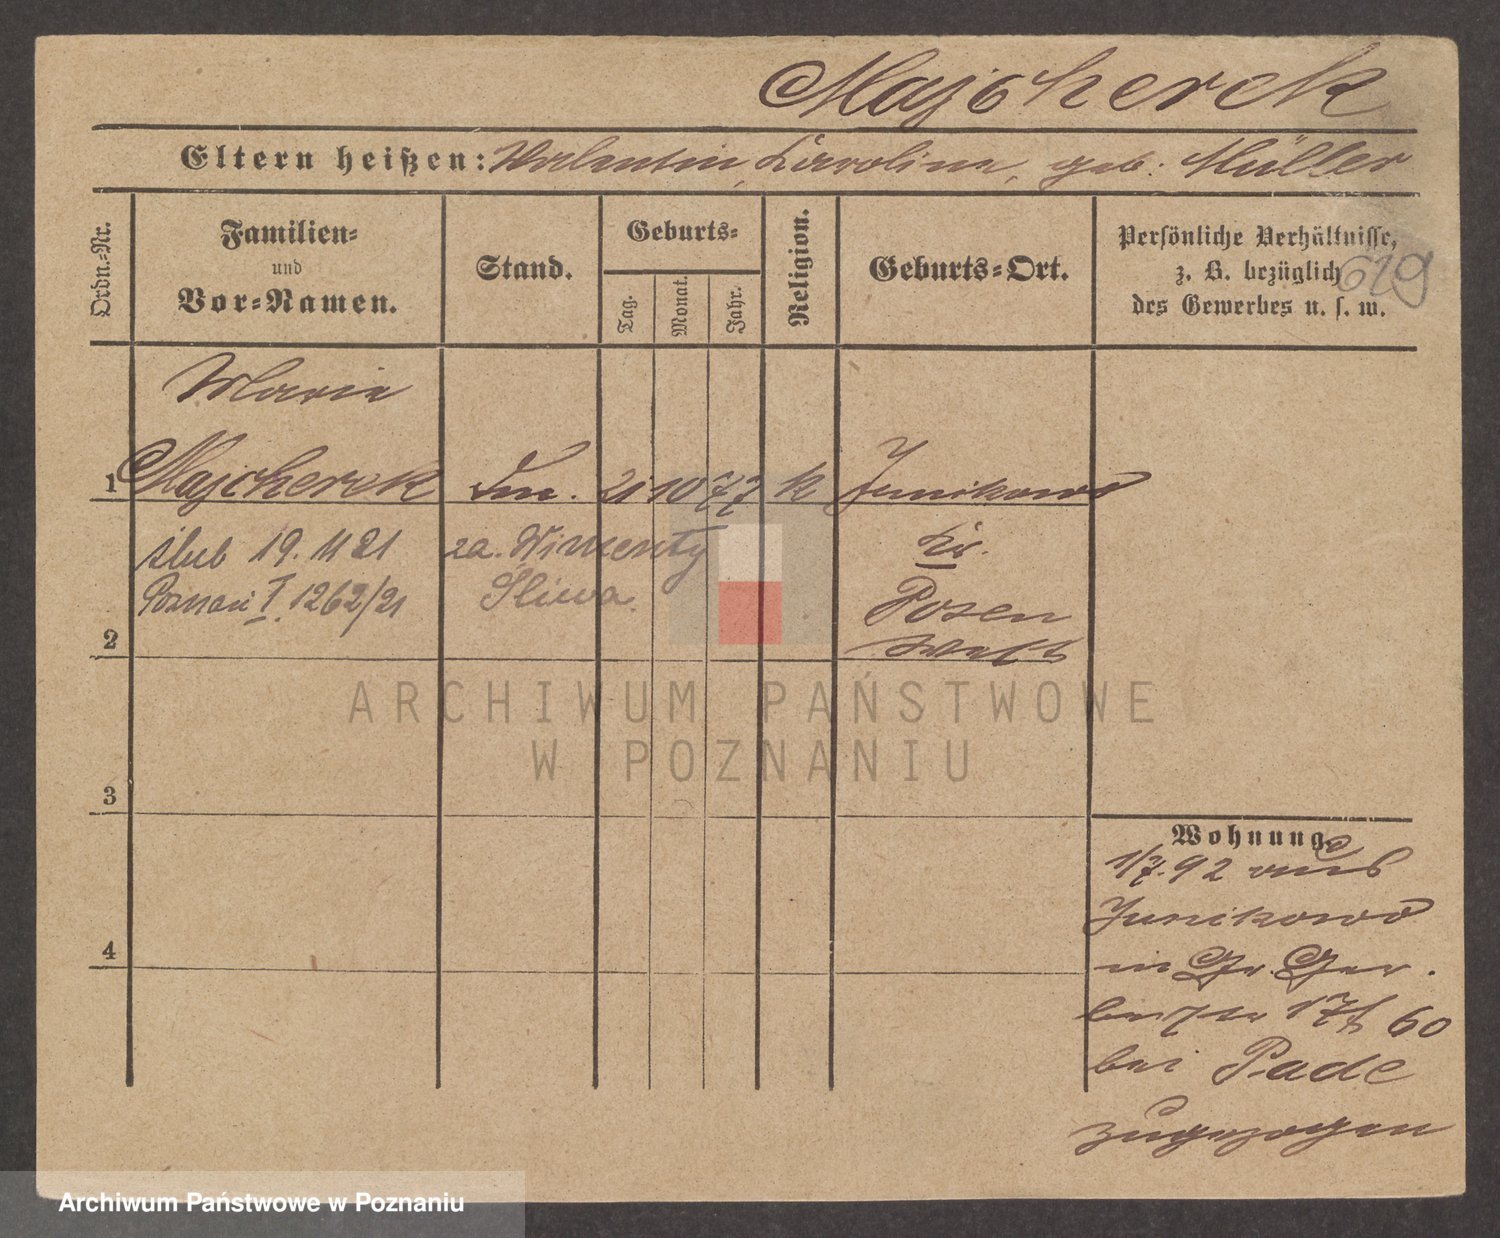 Majcherek
Eltern heißen: Valentin, Karolina, geb. Müller
Ordn.-Nr.
Familien-
und
Vor-Namen.
Stand.
Geburts-
Tag.
Monat.
Jahr.
Religion.
Geburts-Ort.
Persönliche Verhältnisse,
z. B. bezüglich
des Gewerbes u. s. w.
619
Marie
1 Majcherek 21 10 77 k Junikowo
ślub 19.11 21 za. Wincenty Kr.
Poznań I. 1262/21 Śliwa. Posen
2 West
ARCHIWUM PAŃSTWOWE
W POZNANIU
3
Wohnung
1/7.92 aus
Junikowo
in Gr. Ger.
berstr 17 60
4
bei Pade
zugezogen
Archiwum Państwowe w Poznaniu